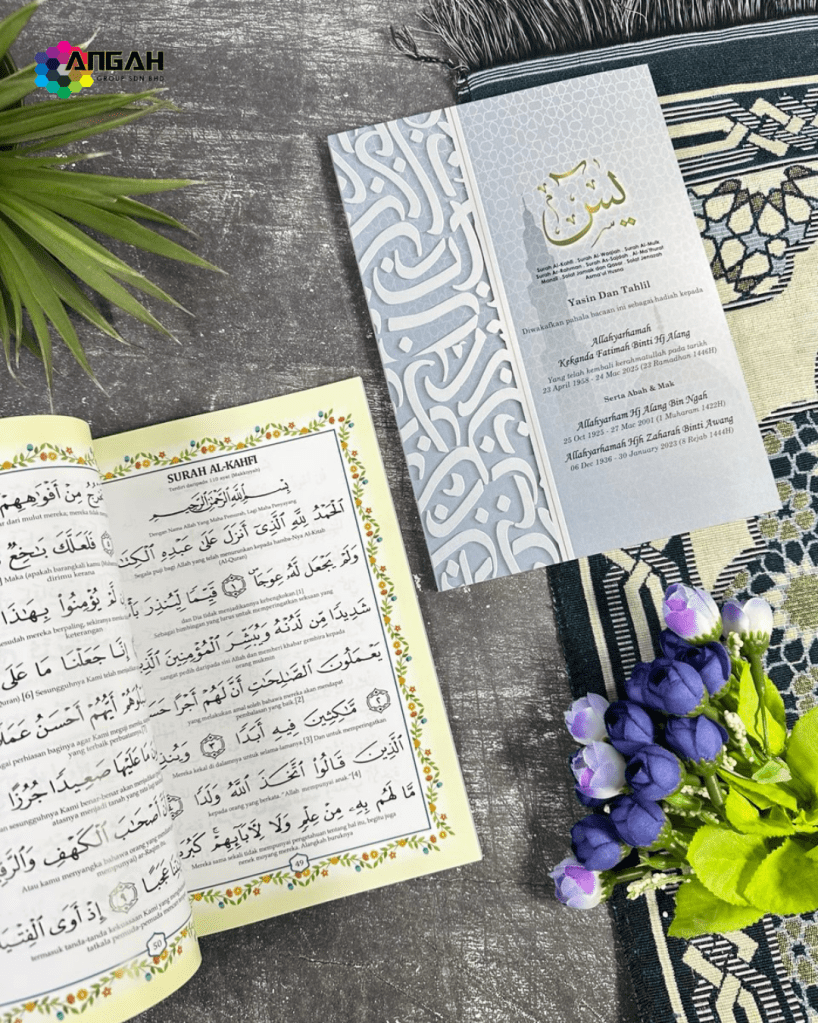 ANGAH
GROUP SDN BHD
يس
Surah Al-Kahfi . Surah Al-Waqiah . Surah Al-Mulk
Surah Ar-Rahman . Surah As-Sajdah . Al-Ma'thurat
Manzil . Solat Jamak dan Qasar . Solat Jenazah
Asma'ul Husna
Yasin Dan Tahlil
Diwakafkan pahala bacaan ini sebagai hadiah kepada
Allahyarhamah
Kekanda Fatimah Binti Hj Alang
Yang telah kembali kerahmatullah pada tarikh
23 April 1958 - 24 Mac 2025 (23 Ramadhan 1446H)
Serta Abah & Mak
Allahyarham Hj Alang Bin Ngah
25 Oct 1925 - 27 Mac 2001 (1 Muharam 1422H)
Allahyarhamah Hjh Zaharah Binti Awang
06 Dec 1936 - 30 January 2023 (8 Rejab 1444H)
SURAH AL-KAHFI
Terdiri daripada 110 ayat (Makkiyyah)
بِسْمِ اللَّهِ الرَّحْمَٰنِ الرَّحِيمِ
Dengan Nama Allah Yang Maha Pemurah, Lagi Maha Penyayang
الْحَمْدُ لِلَّهِ الَّذِي أَنزَلَ عَلَىٰ عَبْدِهِ الْكِتَابَ
Segala puji bagi Allah yang telah menurunkan kepada hamba-Nya Al-Kitab
(Al-Quran)
وَلَمْ يَجْعَل لَّهُ عِوَجًا ١ قَيِّمًا لِّيُنذِرَ
dan Dia tidak menjadikannya kebengkokan.[1]
Sebagai bimbingan yang lurus untuk memperingatkan seksaan yang
شَدِيدًا مِّن لَّدُنْهُ وَيُبَشِّرَ الْمُؤْمِنِينَ الَّذِينَ
sangat pedih daripada sisi Allah dan memberi khabar gembira kepada
orang mukmin
يَعْمَلُونَ الصَّالِحَاتِ أَنَّ لَهُمْ أَجْرًا
yang melakukan amal soleh bahawa mereka akan mendapat
pembalasan yang baik [2]
٢ مَّاكِثِينَ فِيهِ أَبَدًا ٣
Mereka kekal di dalamnya untuk selama-lamanya.[3] Dan untuk memperingatkan
الَّذِينَ قَالُوا اتَّخَذَ اللَّهُ وَلَدًا
kepada orang yang berkata, "Allah mempunyai anak."[4]
مَّا لَهُم بِهِ مِنْ عِلْمٍ وَلَا لِآبَائِهِمْ كَبُرَتْ
Mereka sama sekali tidak mempunyai pengetahuan tentang hal itu, begitu juga
nenek moyang mereka. Alangkah buruknya
49
مِنْ أَفْوَاهِهِمْ
dari mulut mereka; mereka tidak
فَلَعَلَّكَ بَاخِعٌ
Maka (apakah barangkali kamu
dirimu kerana
لَّمْ يُؤْمِنُوا بِهَٰذَا
mereka berpaling, sekiranya
keterangan
إِنَّا جَعَلْنَا مَا عَلَى
[6] Sesungguhnya Kami telah
أَيُّهُمْ أَحْسَنُ عَمَلًا
perhiasan baginya agar Kami menguji
yang terbaik perbuatannya.
مَا عَلَيْهَا صَعِيدًا جُرُزًا
sesungguhnya Kami benar-benar akan menjadikan
atasnya menjadi tanah yang
أَصْحَابَ الْكَهْفِ وَالرَّقِيمِ
Atau kamu menyangka bahawa orang yang
ar-Raqim itu
عَجَبًا ٩ إِذْ أَوَى الْفِتْيَةُ
termasuk tanda-tanda kekuasaan Kami yang
tatkala pemuda-pemuda
50